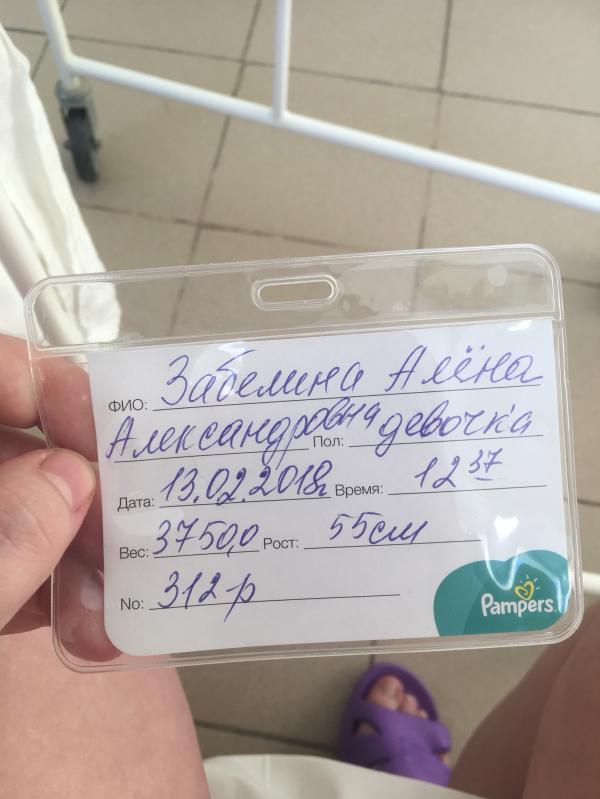 ФИО: Забелина Алёна
Александровна Пол: девочка
Дата: 13.02.2018г Время: 12 37
Вес: 3750,0 Рост: 55см
No: 312 р
Pampers